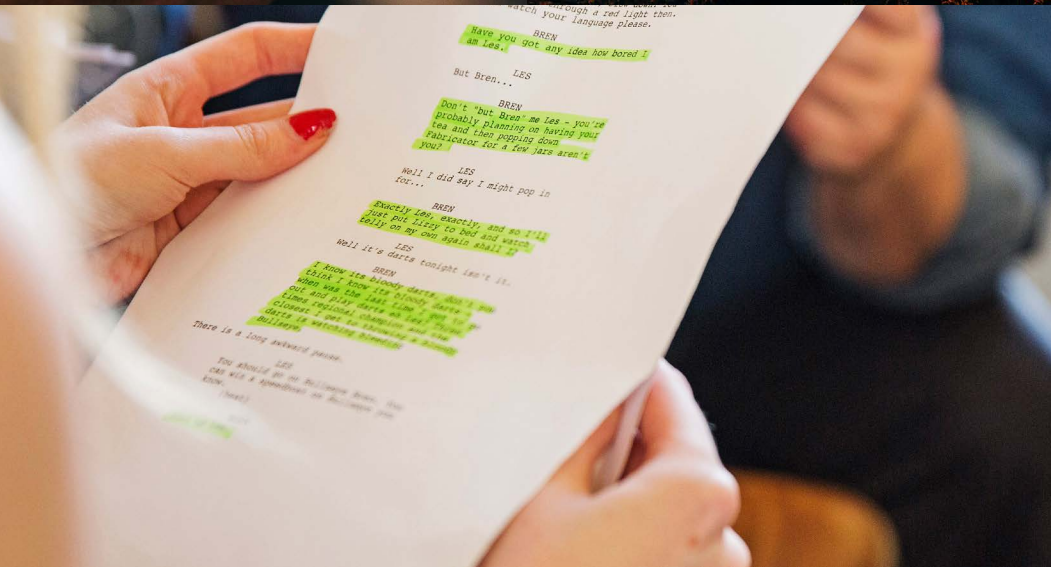 through a red light then.
watch your language please.
BREN
Have you got any idea how bored I
am Les.
LES
But Bren...
BREN
Don't "but Bren" me Les - you're
probably planning on having your
tea and then popping down
Fabricator for a few jars aren't
you?
LES
Well I did say I might pop in
for...
BREN
Exactly Les, exactly, and so I'll
just put Lizzy to bed and watch
telly on my own again shall I?
LES
Well it's darts tonight isn't it.
BREN
I know its bloody darts, don't you
think I know its bloody darts -
when was the last time I got to go
out and play darts eh Les? Three
times regional champion and now the
closest I get to throwing a bloody
darts is watching bleedin
Bullseye.
There is a long awkward pause.
LES
You should go on Bullseye Bren. You
can win a speedboat on Bullseye you
know.
(beat)